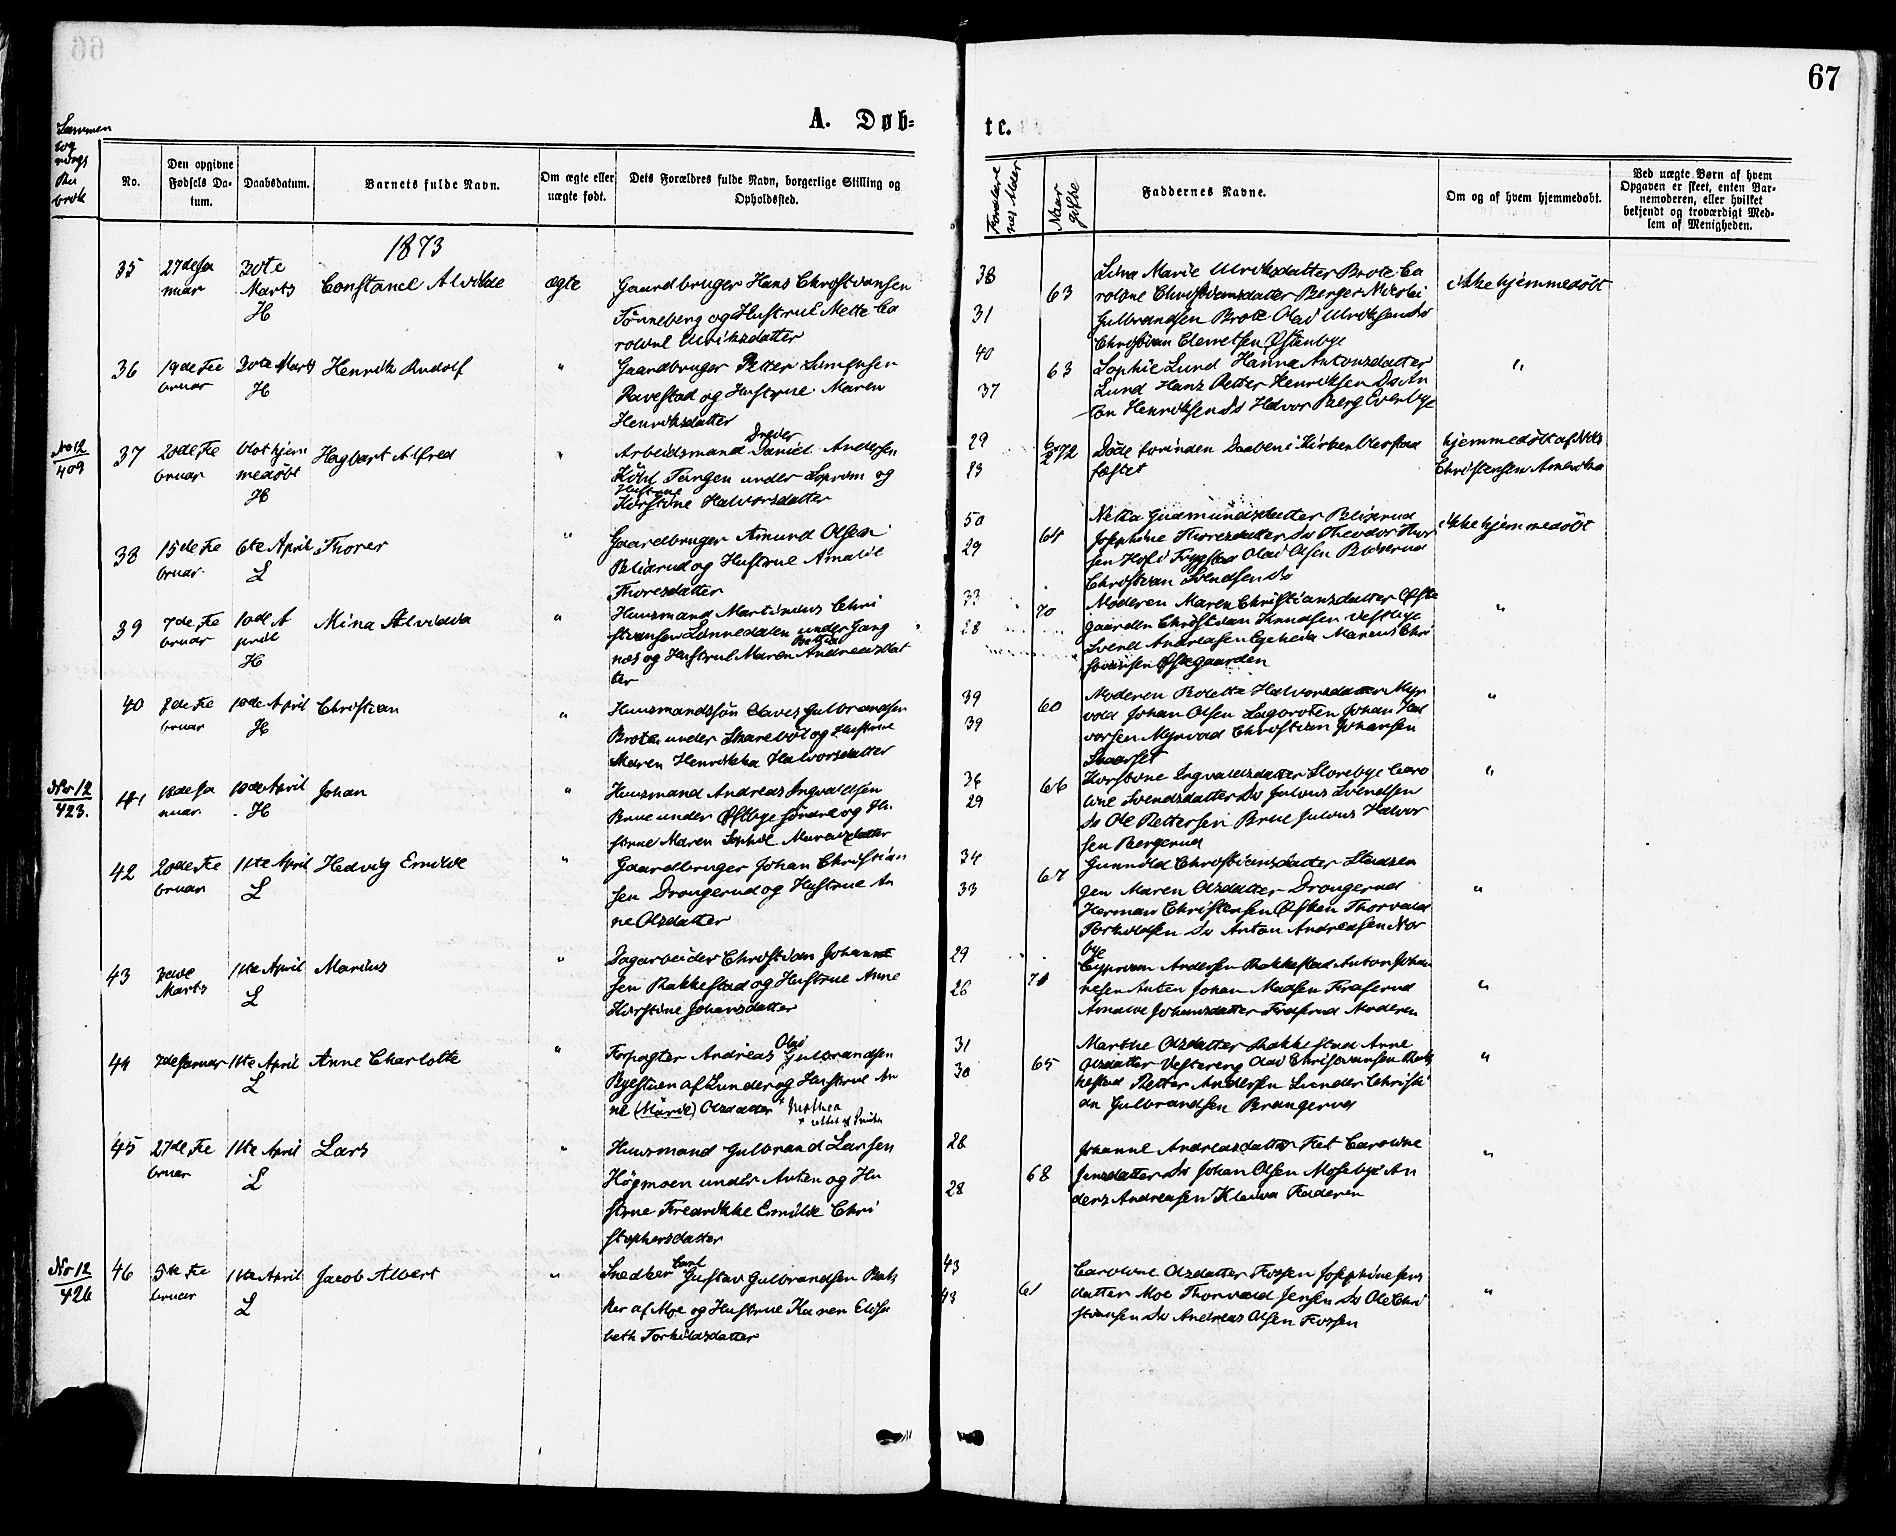 67
A. Døb-
te.
No.
Den opgivne
Fødsels Da-
tum.
Daabsdatum.
Barnets fulde Navn.
Om ægte eller
uægte født.
Dets Forældres fulde Navn, borgerlige Stilling og
Opholdssted.
Faddernes Navne.
Om og af hvem hjemmedøbt.
Ved uægte Børn af hvem
Opgaven er skeet, enten Bar-
nemoderen, eller hvilket
bekjendt og troværdigt Med-
lem af Menigheden.
1873
35
27de Ja
nuar
30te
Marts
H
Constance Alvilde
ægte
Gaardbruger Hans Christiansen
Tønneberg og Hustrue Mette Ca
roline Ulriksdatter
38
31
63
Lina Marie Ulriksdatter Brote Ca
roline Christiansdatter Berger Nikolai
Gulbrandsen Brote Olai Ulriksen Do
Christian Clemetsen Østenbye
ikke hjemmedøbt
36
19de Fe
bruar
30te Marts
H
Henrik Rudolf
"
Gaardbruger Petter Simensen
Ravestad og Hustrue Maren
Henriksdatter
40
37
63
Sophie Lund Hanna Antonsdatter
Lund Hans Petter Henriksen Do An
ton Henriksen Do Halvor Berg Everbye
"
No 12
409
37
20de Fe
bruar
blot hjem
medøbt
H
Hagbart Alfred
"
Arbeidsmand Daniel Andersen
Tangen under Soprim og
Hustrue
Kirstine Halvorsdatter
29
23
6/2 72
Døde forinden Daaben i Kirken
fæstet
hjemmedøbt af
Christensen
38
15de Fe
bruar
6te April
L
Thorer
"
Gaardbruger Amund Olsen
Blixrud og Hustrue Amalie
Thoresdatter
50
29
64
Netta Gudmundsdatter Blixrud
Josephine Thoresdatter Do Theodor Thor
sen Hof i Trygstad Olai Olsen Blixerud
Christian Svendsen Do
ikke hjemmedøbt
39
7de Fe
bruar
10de A
pril
H
Mina Alvilda
"
Huusmand Martinius Chri
stiansen Linnedalen under Gang
næs og Hustrue Maren Andreasdat
ter
33
28
70
Moderen Maren Christiansdatter Øste
gaarden Christian Knudsen Vestbye
Svend Andreasen Egeheia Marius Chri
stiansen Østegaarden
"
40
7de Fe
bruar
10de April
H
Christian
"
Huusmandssøn Claves Gulbrandsen
Brote under Skarebøl og Hustrue
Maren Henrikka Halvorsdatter
39
39
60
Moderen Boletta Halvorsdatter Myr
vold Johan Olsen Lagoroten Johan Hal
vorsen Myrvold Christian Johansen
Skaaret
"
No 12
423.
41
18de Ja
nuar
10de April
H
Johan
"
Huusmand Andreas Ingvaldsen
Brue under Østbye søndre og Hu
strue Maren Sophie Mareusdatter
36
29
66
Kirstine Ingvaldsdatter Storebye Caro
line Svendsdatter Do Julius Svendsen
Do Ole Pettersen Brue Julius Halvor
sen Bergerud
"
42
20de Fe
bruar
11te April
L
Hedvig Emilie
"
Gaardbruger Johan Christian
sen Drongerud og Hustrue An
ne Olsdatter
34
33
67
Gunnild Christiansdatter Stadsen
gen Maren Olsdatter Drongerud
Herman Christensen Østen Thorvald
Torkildsen Do Anton Andreasen Nor
bye
"
43
Marts
11te April
L
Marius
"
Dagarbeider Christian Johanne
sen Rakkestad og Hustrue Anne
Kirstine Johansdatter
29
26
71
Cyprian Andersen Rakkestad Anton Johan
nesen Anten Johan Madsen Fraserud
Amalie Johansdatter Fraserud Moderen
"
44
7de Januar
11te April
L
Anne Charlotte
"
Forpagter Andreas Olai Gulbrandsen
Byestuen af Lunder og Hustrue An
ne (Marie) Olsdatter
31
30
65
Marthe Olsdatter Rakkestad Anne
Olsdatter Vestereng Olai Christiansen Rak
kestad Petter Andersen Lunder Christi
an Gulbrandsen Brangerud
"
45
27de Fe
bruar
11te April
L
Lars
"
Huusmand Gulbrand Larsen
Høgmoen under Anten og Hu
strue Fredrikke Emilie Chri
stophersdatter
28
28
68
Johanne Andreasdatter Fet Caroline
Jensdatter Do Johan Olsen Mosebye An
ders Andreasen Kleiva Faderen
"
No 12
426
46
5te Fe
bruar
11te April
L
Jacob Albert
"
Snedker Carl Gustav Gulbrandsen Bak
ker af Moe og Hustrue Karen Elisa
beth Torkildsdatter
43
43
61
Caroline Olsdatter Fossen Josephine Jens
datter Moe Thorvald Jensen Do Ole Chri
stiansen Do Andreas Olsen Fossen
"